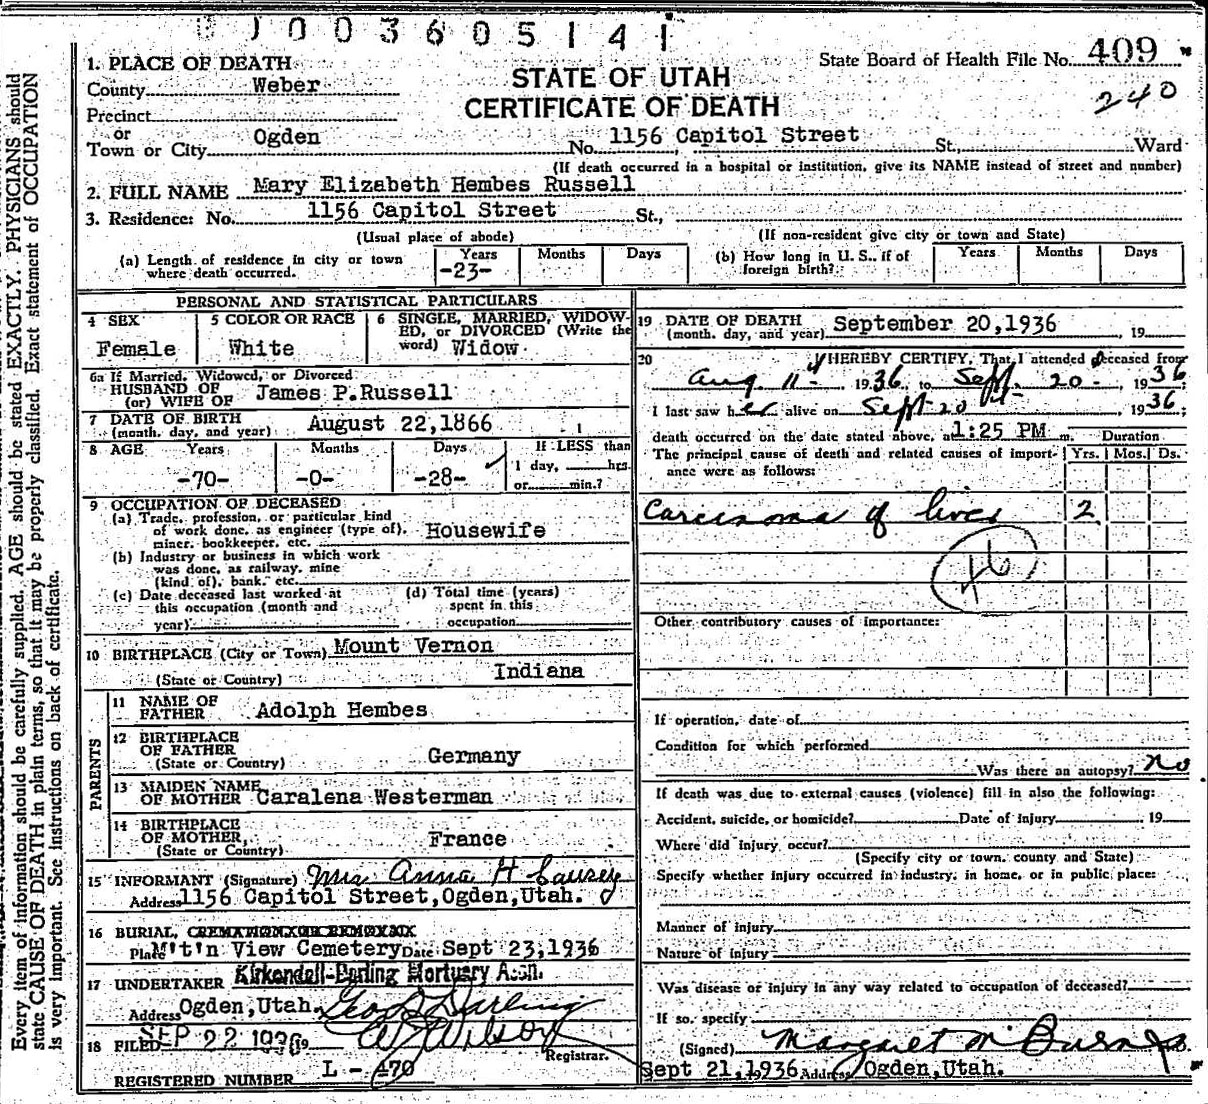 003605141
State Board of Health File No. 409
240
STATE OF UTAH
CERTIFICATE OF DEATH
1. PLACE OF DEATH
County Weber
Precinct
or
Town or City Ogden No. 1156 Capitol Street St., Ward
(If death occurred in a hospital or institution, give its NAME instead of street and number)
2. FULL NAME Mary Elizabeth Hembes Russell
3. Residence: No. 1156 Capitol Street St.,
(Usual place of abode) (If non-resident give city or town and State)
(a) Length of residence in city or town where death occurred. Years -23- Months Days
(b) How long in U. S., if of foreign birth? Years Months Days
PERSONAL AND STATISTICAL PARTICULARS
4 SEX Female
5 COLOR OR RACE White
6 SINGLE, MARRIED, WIDOWED, or DIVORCED (Write the word) Widow
6a If Married, Widowed, or Divorced
HUSBAND OF
(or) WIFE OF James P.Russell
7 DATE OF BIRTH
(month, day, and year) August 22,1866
8 AGE Years -70- Months -0- Days -28- If LESS than 1 day, hrs. or min.?
9 OCCUPATION OF DECEASED
(a) Trade, profession, or particular kind
of work done, as engineer (type of),
miner, bookkeeper, etc. Housewife
(b) Industry or business in which work
was done, as railway, mine
(kind of), bank, etc.
(c) Date deceased last worked at
this occupation (month and
year)
(d) Total time (years)
spent in this
occupation
10 BIRTHPLACE (City or Town) Mount Vernon
(State or Country) Indiana
PARENTS
11 NAME OF
FATHER Adolph Hembes
12 BIRTHPLACE
OF FATHER
(State or Country) Germany
13 MAIDEN NAME
OF MOTHER Caralena Westerman
14 BIRTHPLACE
OF MOTHER,
(State or Country) France
15 INFORMANT (Signature) Mrs Anna H Causey
Address 1156 Capitol Street,Ogden,Utah.
16 BURIAL, CREMATION OR REMOVAL
Place M't'n View Cemetery Date Sept 23,1936
17 UNDERTAKER Kirkendall-Darling Mortuary Assn.
Address Ogden,Utah. Geo Darling
18 FILED SEP 22 1936 19 Wilson
Registrar.
REGISTERED NUMBER L - 470
19 DATE OF DEATH
(month, day, and year) September 20,1936 19
20 I HEREBY CERTIFY, That I attended deceased from
Aug. 11 1936 to Sept. 20 1936;
I last saw her alive on Sept 20 1936;
death occurred on the date stated above, at 1:25 PM m. Duration
The principal cause of death and related causes of importance were as follows: Yrs. Mos. Ds.
Carcinoma of liver 2
46
Other contributory causes of importance:
If operation, date of
Condition for which performed
Was there an autopsy? No
If death was due to external causes (violence) fill in also the following:
Accident, suicide, or homicide? Date of injury 19
Where did injury occur?
(Specify city or town, county and State)
Specify whether injury occurred in industry, in home, or in public place:
Manner of injury
Nature of injury
Was disease or injury in any way related to occupation of deceased?
If so, specify
(Signed) Margaret M Burns
Sept 21,1936 Address Ogden,Utah.
Every item of information should be carefully supplied. AGE should be stated EXACTLY. PHYSICIANS should
state CAUSE OF DEATH in plain terms, so that it may be properly classified. Exact statement of OCCUPATION
is very important. See instructions on back of certificate.